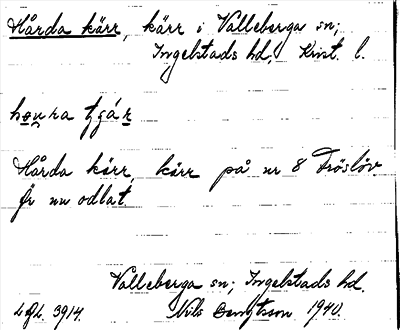 Hårda kärr, kärr i Valleberga sn;
Ingelstads hd, Krist. l.
Hårda kärr, kärr på nr 8 Fröslöv.
Är nu odlat.
Valleberga sn; Ingelstads hd.
3914. Nils Bengtsson 1940.